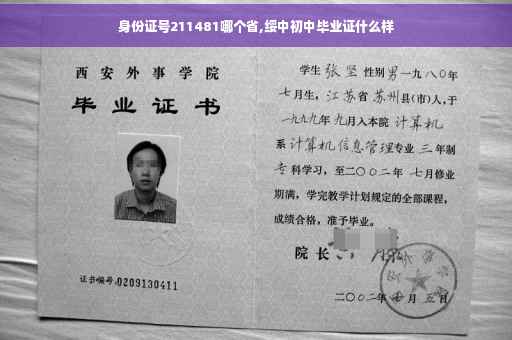 身份证号211481哪个省,绥中初中毕业证什么样
西安外事学院
毕业证书
证书编号:0209130411
学生 张坚 性别 男 一九八〇年
七月生, 江苏省 苏州 县(市)人,于
一九九九年 九月入本院 计算机
系 计算机信息管理 专业 三 年制
专科学习, 至二〇〇二年 七月修业
期满, 学完教学计划规定的全部课程,
成绩合格, 准予毕业。
院长
二〇〇二年 月 五日